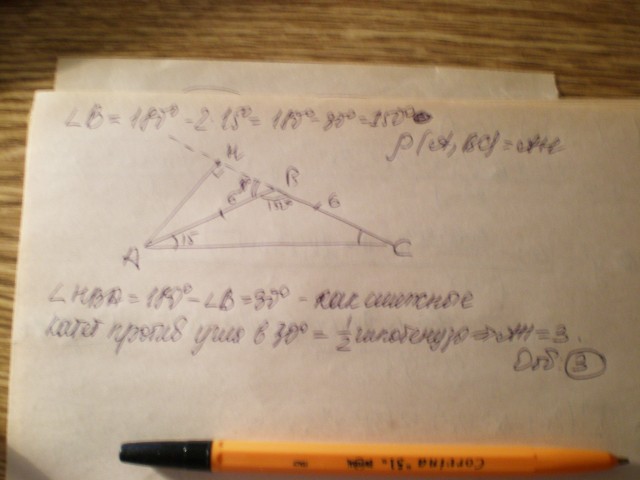 ∠B = 180° - 2·15° = 180° - 30° = 150°
ρ(A, BC) = AH
H
B
30°
6
150°
6
15
A
C
∠HBA = 180° - ∠B = 30° - как смежное
Катет против угла в 30° = 1/2 гипотенузы => AH = 3.
Отв. 3
Corvina "51.